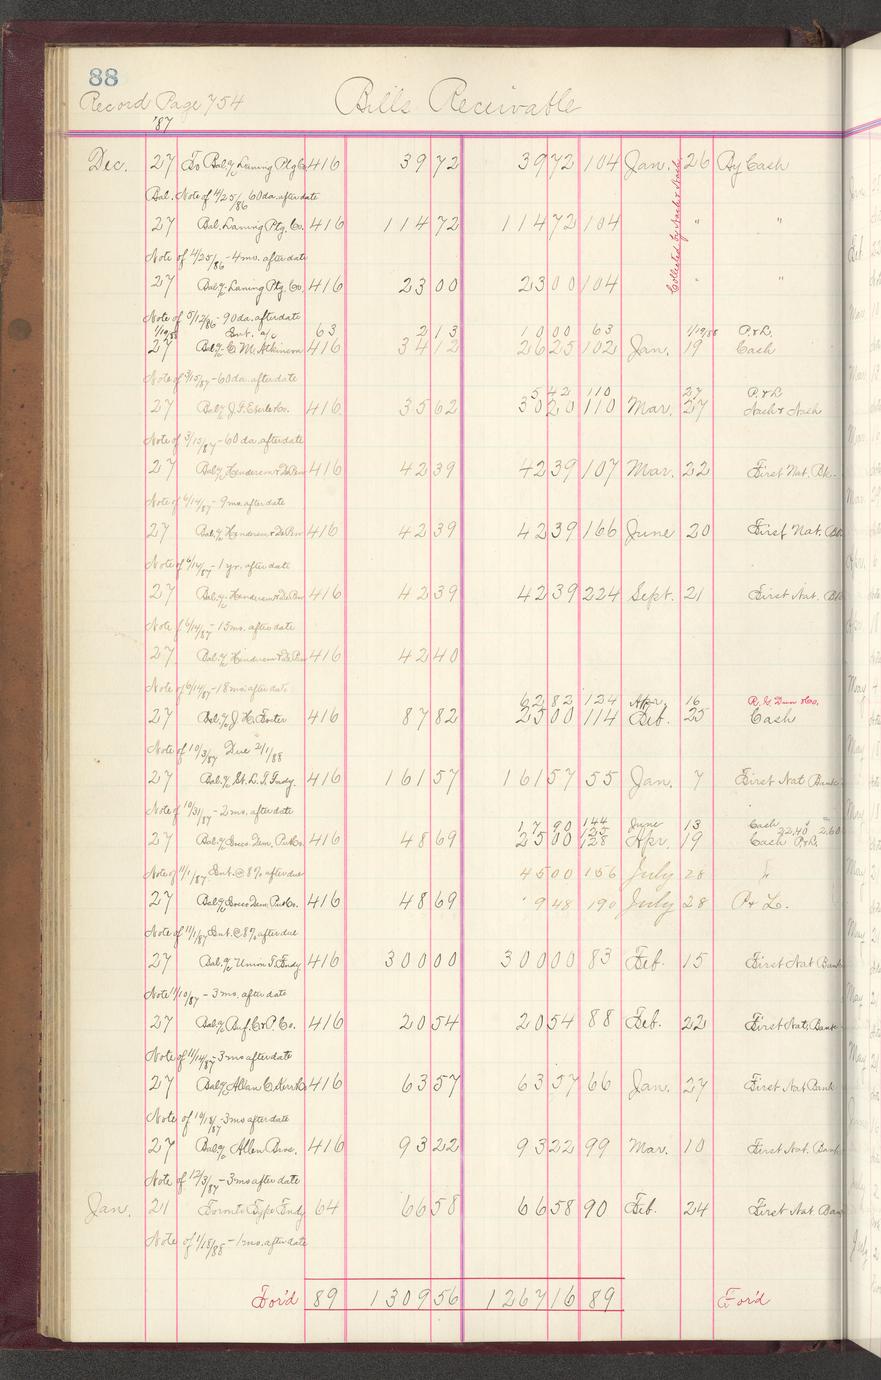 88
Record Page 754 Bills Receivable
'87
Dec. 27 To Bal. a/c Laning Ptg Co 416 39 72 39 72 104 Jan. 26 By Cash
Collected by Nash & Nash
Bal. Note of 4/25/86 60 da. after date
27 Bal. Laning Ptg. Co. 416 114 72 114 72 104 " "
Note of 4/25/86 - 4 mo. after date
27 Bal a/c Laning Ptg. Co. 416 23 00 23 00 104 " "
Note of 5/12/86 - 90 da. after date
1/19/88 Int. a/c 63 2 13 10 00 63 1/19/88 P. & L.
27 Bal a/c C. M. Atkinson 416 34 12 26 25 102 Jan. 19 Cash
Note of 3/15/87 - 60 da. after date
5 42 110 27 P. & L.
27 Bal a/c J. F. Eberle Co. 416 35 62 30 20 110 Mar. 27 Nash & Nash
Note of 3/15/87 - 60 da. after date
27 Bal a/c Henderson & DePew 416 42 39 42 39 107 Mar. 22 First Nat. Bk.
Note of 6/14/87 - 9 mo. after date
27 Bal a/c Henderson & DePew 416 42 39 42 39 166 June 20 First Nat. Bk
Note of 6/14/87 - 1 yr. after date
27 Bal. a/c Henderson & DePew 416 42 39 42 39 224 Sept. 21 First Nat. Bk
Note of 6/14/87 - 15 mo. after date
27 Bal a/c Henderson & DePew 416 42 40
Note of 6/14/87 - 18 mo. after date
62 82 124 Apr. 16 R. G. Dunn & Co.
27 Bal. a/c J. H. Foster 416 87 82 25 00 114 Feb. 25 Cash
Note of 10/3/87 Due 2/1/88
27 Bal. a/c St. L. T. Fndy. 416 161 57 161 57 55 Jan. 7 First Nat Bank
Note of 10/31/87 - 2 mo. after date
17 90 144 June 13 Cash 22.40
27 Bal a/c Pub Co. 416 48 69 25 00 128 Apr. 19 Cash P. & L. 2.60
Note of 11/1/87 Int. @ 8% after due 45 00 156 July 28
27 Bal a/c Pub Co. 416 48 69 9 48 190 July 28 P & L.
Note of 11/1/87 Int. @ 8% after due
27 Bal. a/c Union T. Fndy 416 300 00 300 00 83 Feb. 15 First Nat Bank
Note 11/10/87 - 3 mo. after date
27 Bal a/c Buf. C. & P. Co. 416 20 54 20 54 88 Feb. 22 First Nat. Bank
Note of 11/14/87 - 3 mo after date
27 Bal a/c Allan C. Kerr & Co 416 63 57 63 57 66 Jan. 27 First Nat Bank
Note of 10/18/87 - 3 mo after date
27 Bal a/c Allen Bros. 416 93 22 93 22 99 Mar. 10 First Nat. Bank
Note of 12/3/87 - 3 mo after date
Jan. 21 Toronto Type Fndy 64 66 58 66 58 90 Feb. 24 First Nat Bank
Note of 1/18/88 - 1 mo. after date
For'd 89 1309 56 1267 16 89 For'd